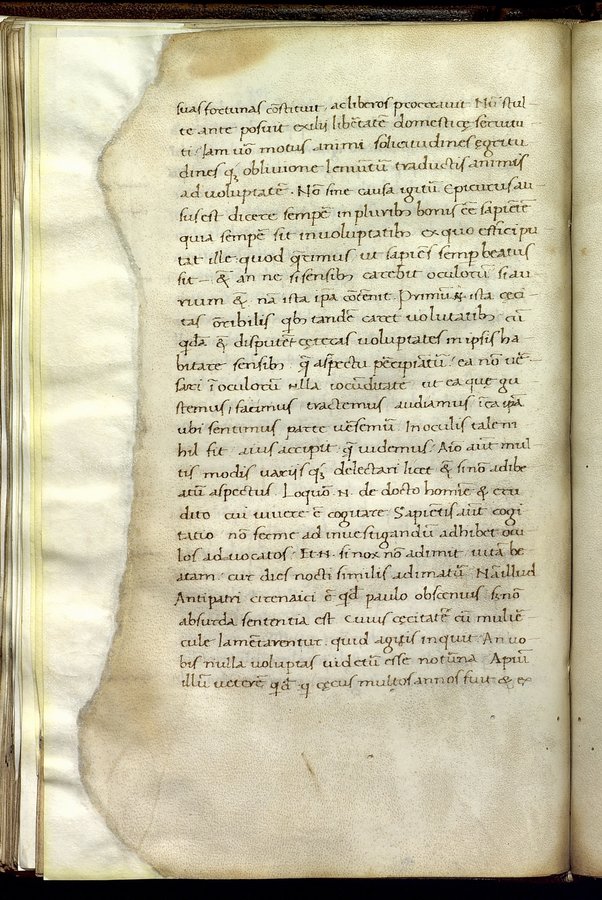 suas fortunas cōstituit, ac liberos procreauit Nō stul-
te ante posuit exilii libertatē domesticę seruitu
ti. Iam uō motus animi solicitudines ęgritu
dines q; obliuione leniuntū traductis animis
ad uoluptatē. Nō sine causa igitū Epicurus au
sus est dicere sempē in plurib; bonis eē sapiētē
quia sempē sit in uoluptatib; ex quo effici pu
tat ille quod q̄rimus ut sapiēs semp beatus
sit & an ne si sensib; carebit oculorū si au-
rium & nā ista ipa cōtēnit. Primū N̄ ista cęci
tas orribilis q̄b; tandē caret uolutatib; cū
q̄dā & disputēt cęteras uoluptates in ipsis ha
bitare sensib; q̄ aspectu pēcipiātū ea nō uē
sari ī oculorū ulla iocūditate ut ea quę gu
stemus facimus tractemus audiamus ī ea ipā
ubi sentimus parte uēsemū. In oculis tale ni
hil fit aius accipit q̄ uidemus. Aīo aūt mul
tis modis uariis q; delectari licet & si nō adibe
atū aspectus. Loquō .N. de docto homīe & eru
dito cui uiuere ē cogitare. Sapiētis aūt cogi
tatio nō ferme ad inuestigandū adhibet ocu
los aduocatos. Et .N. si nox nō adimit uitā be
atam cur dies nocti similis adimatū. Nā illud
Antipatri cirenaici ē q̄d paulo obscenius s; nō
absurda sententia est Cuius cęcitatē cū muliē
culę lamētarentur. quid agitis inquit. An uo
bis nulla uoluptas uidetū esse notūna Apiū
illū ueterē q̄dē q cęcus multos annos fuit & ex